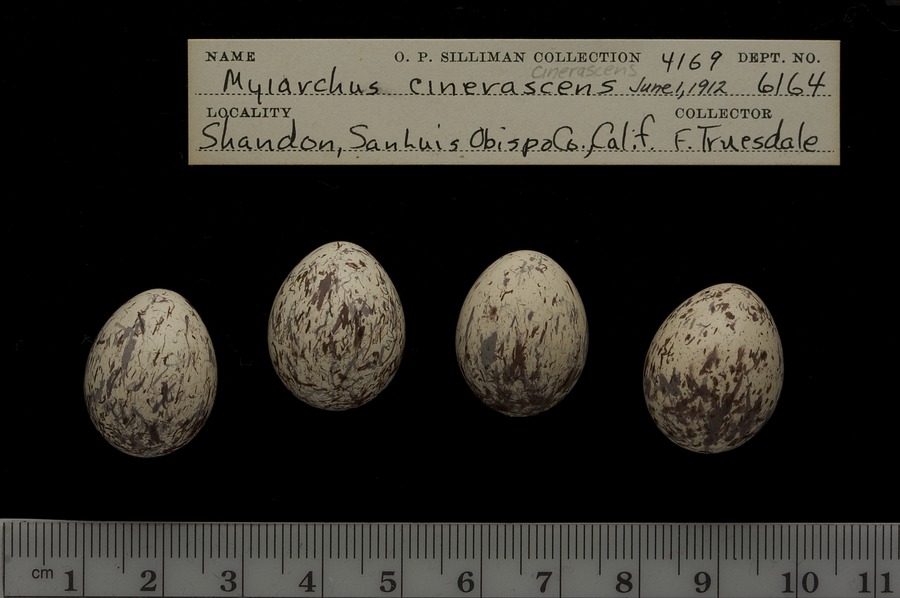 NAME O. P. SILLIMAN COLLECTION 4169 DEPT. NO.
cinerascens
Myiarchus cinerascens June 1, 1912 6164
LOCALITY COLLECTOR
Shandon, San Luis Obispo Co., Calif. F. Truesdale
cm 1 2 3 4 5 6 7 8 9 10 11